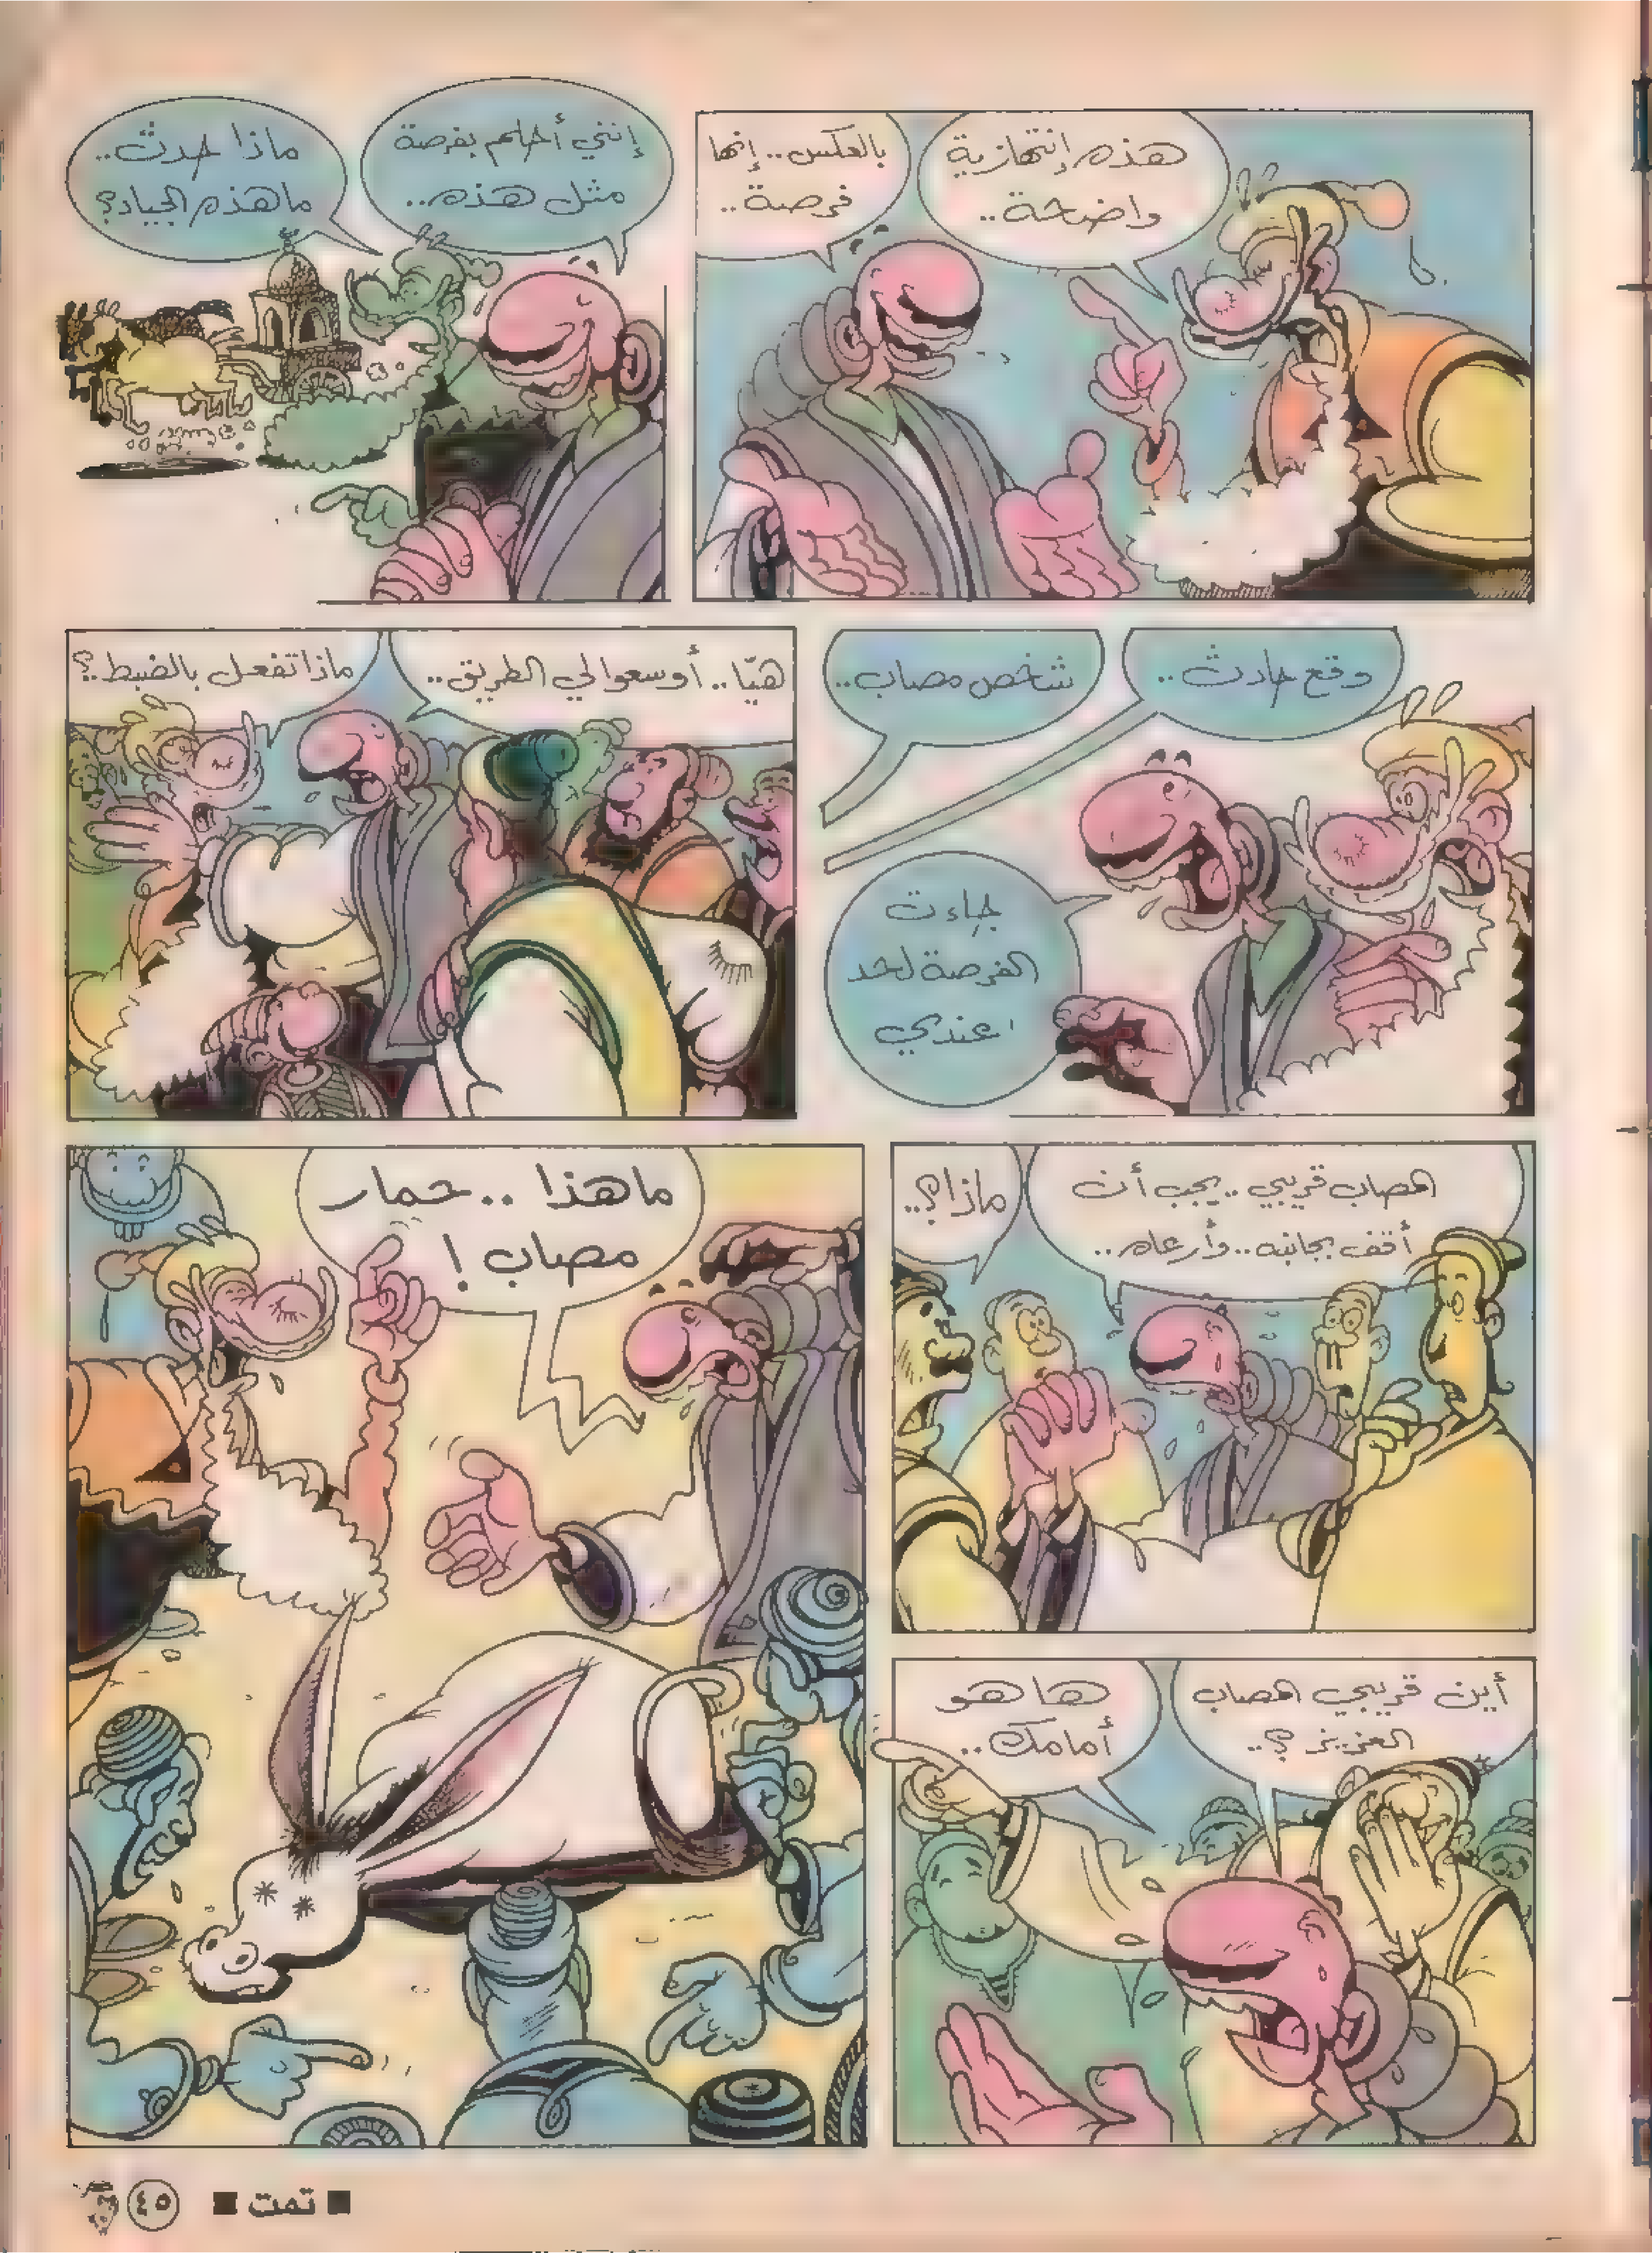 هذه إنتهازية
واضحة..
بالعكس.. إنها
فرصة..
إنني أحلم بفرصة
مثل هذه..
ماذا حدث..
ما هذه الجياد؟
وقع حادث..
شخص مصاب..
جاءت
الفرصة لحد
عندي
هيّا.. أوسعوا لي الطريق..
ماذا تفعل بالضبط..؟
المصاب قريبي.. يجب أن
أقف بجانبه.. وأرعاه..
ماذا؟..
أين قريبي المصاب
العزيز؟..
ها هو
أمامك..
ما هذا .. حمار
مصاب !
■ تمت ■
٤٥